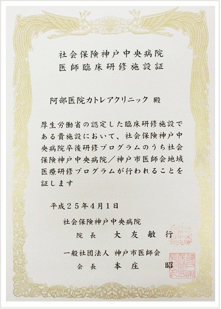 社会保険神戸中央病院
医師臨床研修施設証
阿部医院カトレアクリニック 殿
厚生労働省の認定した臨床研修施設で
ある貴施設において、社会保険神戸中
央病院卒後研修プログラムのうち社会
保険神戸中央病院/神戸市医師会地域
医療研修プログラムが行われることを
証します
平成25年4月1日
社会保険神戸中央病院
院長 大友敏行
一般社団法人 神戸市医師会
会長 本庄昭